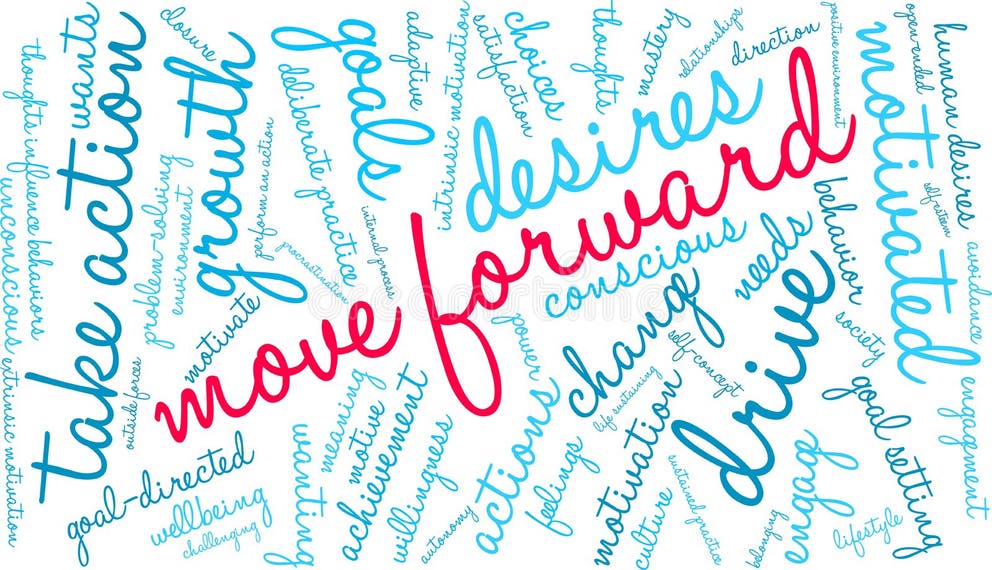 thoughts influence behaviors
wants
unconscious
extrinsic motivation
take action
closure
growth
problem-solving
environment
motivate
outside forces
goal-directed
wellbeing
challenging
perform an action
procrastination
deliberate practice
internal process
goals
adaptive
intrinsic motivation
satisfaction
choices
thoughts
mastery
relationships
direction
positive environment
open-ended
human desires
motivated
self-esteem
avoidance
desires
move forward
conscious
needs
behavior
society
change
drive
power
self-concept
life sustaining
wanting
meaning
motive
achievement
willingness
autonomy
actions
feelings
motivation
culture
sustained practice
belonging
engage
goal setting
lifestyle
engagement